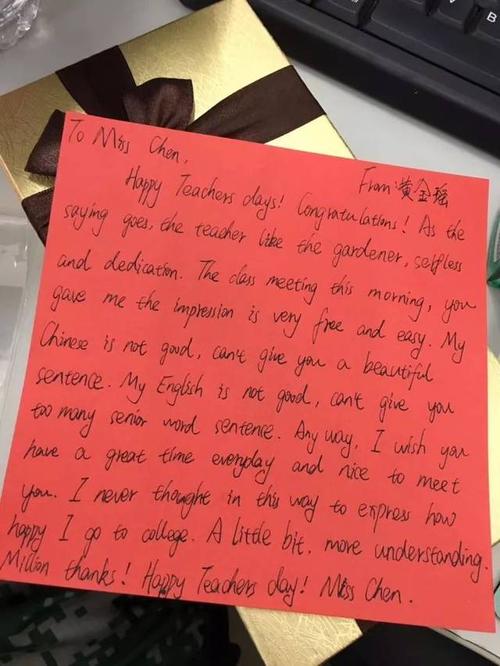 To Miss Chen,
From: 黄金瑶
Happy Teachers days! Congratulations! As the
saying goes, the teacher like the gardener, selfless
and dedication. The class meeting this morning, you
gave me the impression is very free and easy. My
Chinese is not good, can't give you a beautiful
sentence. My English is not good, can't give you
too many senior word sentence. Any way, I wish you
have a great time everyday and nice to meet
you. I never thought in this way to express how
happy I go to college. A little bit, more understanding.
Million thanks! Happy Teachers day! Miss Chen.